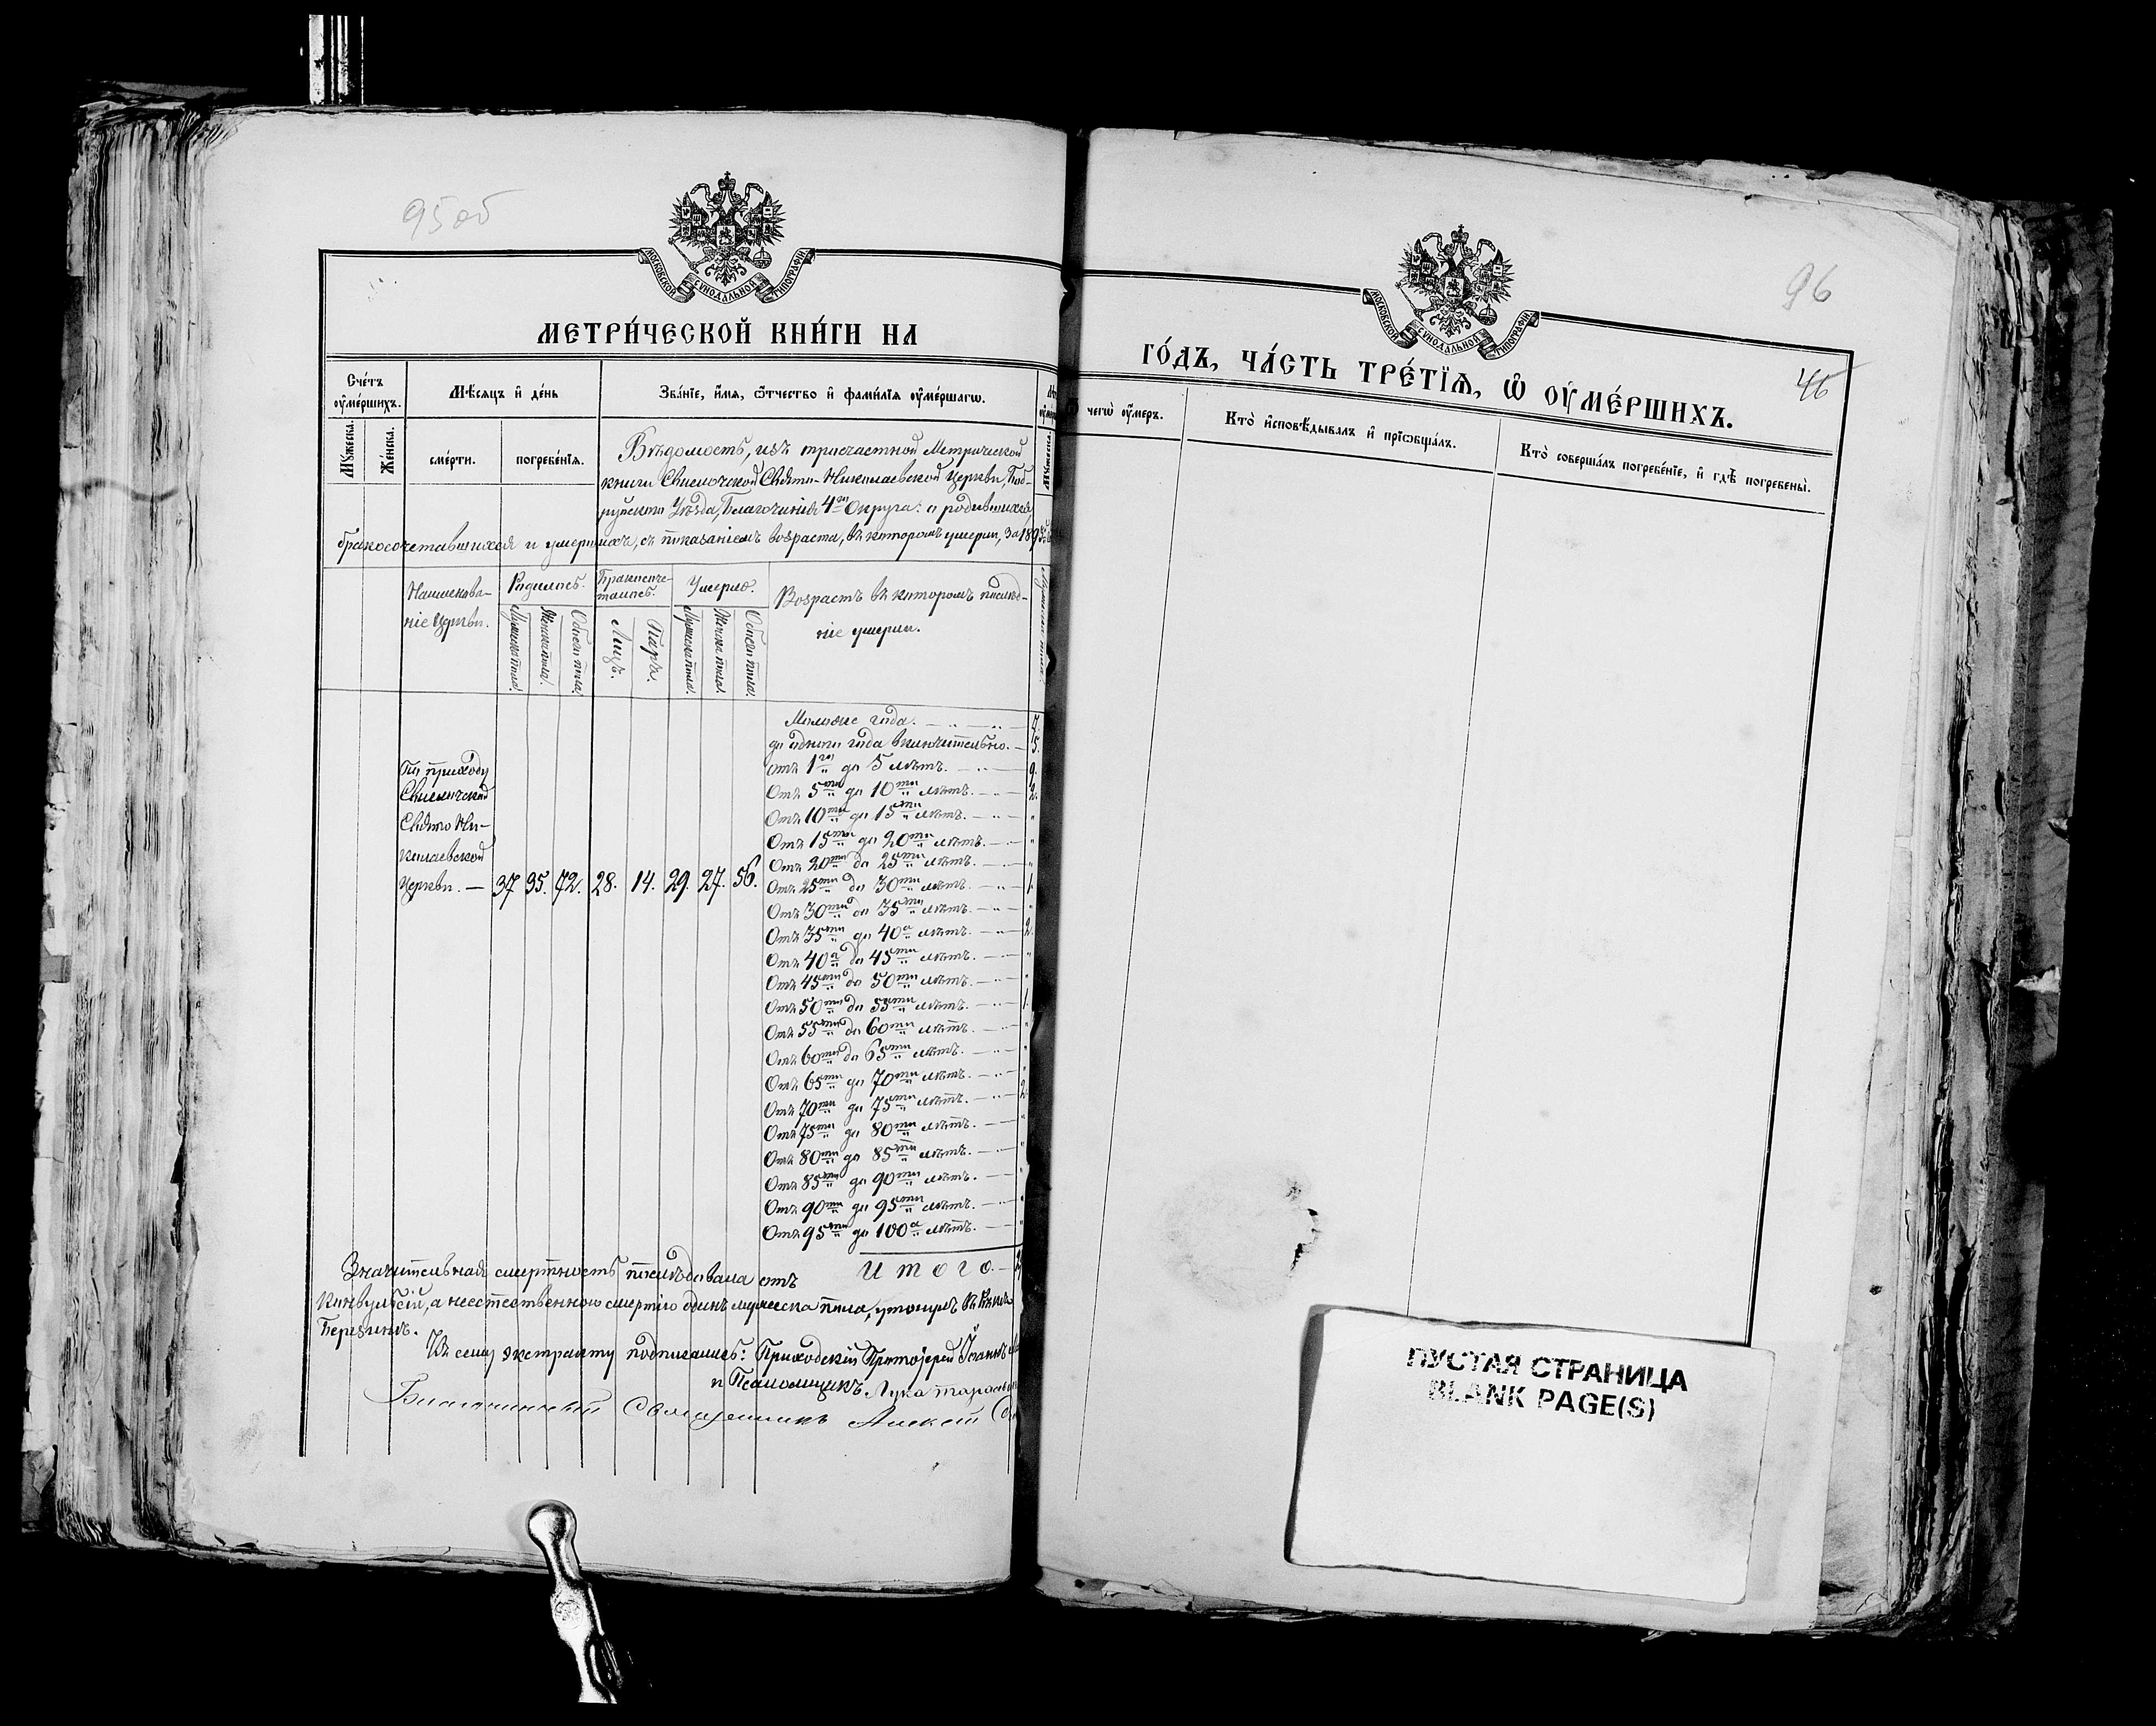 95об
МОСКОВСКОЙ СѴНОДАЛЬНОЙ ТИПОГРАФІИ
МЕТРИ́ЧЕСКОЙ КНИ́ГИ НА
Сче́тъ оуме́ршихъ.
Мѣсяцъ и де́нь
Зва́ніе, и́мя, ѻтчество и фами́лія оуме́ршагѡ.
Мꙋжеска.
Же́нска.
сме́рти.
погребе́нія.
Вѣдомость, изъ тричастной Метрической
книги Свислочской Свято-Николаевской Церкви, Боб-
руйскаго Уѣзда, Благочинія 4го Округа: о родившихся
бракосочетавшихся и умершихъ, съ показаніемъ возраста, въ которомъ умерли, за 1895
Наименова-
ніе Церкви.
Родилось.
Бракосоче-
талось.
Умерло.
Возрастъ въ которомъ послѣд-
ніе умерли.
Мужеска пола.
Женска пола.
Обоего пола.
Лицъ.
Паръ.
Мужеска пола.
Женска пола.
Обоего пола.
По приходу
Свислочской
Свято Ни-
колаевской
Церкви. — 37 35. 72. 28. 14. 29. 27. 56.
Моложе года. — 7.
до одного года включительно. — 5.
отъ 1го до 5 лѣтъ. — 9.
Отъ 5ти до 10ти лѣтъ. — 2.
Отъ 10ти до 15ти лѣтъ. — "
Отъ 15ти до 20ти лѣтъ. — "
Отъ 20ти до 25ти лѣтъ. — "
Отъ 25ти до 30ти лѣтъ. — 1.
Отъ 30ти до 35ти лѣтъ. — "
Отъ 35ти до 40а лѣтъ. — 2.
Отъ 40а до 45ти лѣтъ. — "
Отъ 45ти до 50ти лѣтъ. — "
Отъ 50ти до 55ти лѣтъ. — 1.
Отъ 55ти до 60ти лѣтъ. — "
Отъ 60ти до 65ти лѣтъ. — "
Отъ 65ти до 70ти лѣтъ. — "
Отъ 70ти до 75ти лѣтъ. — 2.
Отъ 75ти до 80ти лѣтъ. — "
Отъ 80ти до 85ти лѣтъ. — "
Отъ 85ти до 90ти лѣтъ. — "
Отъ 90ти до 95ти лѣтъ. — "
Отъ 95ти до 100а лѣтъ. — "
Итого. —
Значительная смертность послѣдовала отъ
конвульсій, а неестественною смертію одинъ мужеска пола, утонулъ въ рѣкѣ
Березинѣ.
Къ сему экстракту подписались: Приходскій Протоіерей Іоаннъ
и Псаломщикъ Лука
Благочинный Священникъ Алексій
96
46
МОСКОВСКОЙ СѴНОДАЛЬНОЙ ТИПОГРАФІИ
ГО́ДЪ, ЧА́СТЬ ТРЕ́ТІѦ, Ѡ ОУМЕ́РШИХЪ.
чегѡ̀ оу́меръ.
Кто̀ исповѣ́дывалъ и прїѡбща́лъ.
Кто̀ соверша́лъ погребе́ніе, и гдѣ̀ погребены̀.
ПУСТАЯ СТРАНИЦА
BLANK PAGE(S)